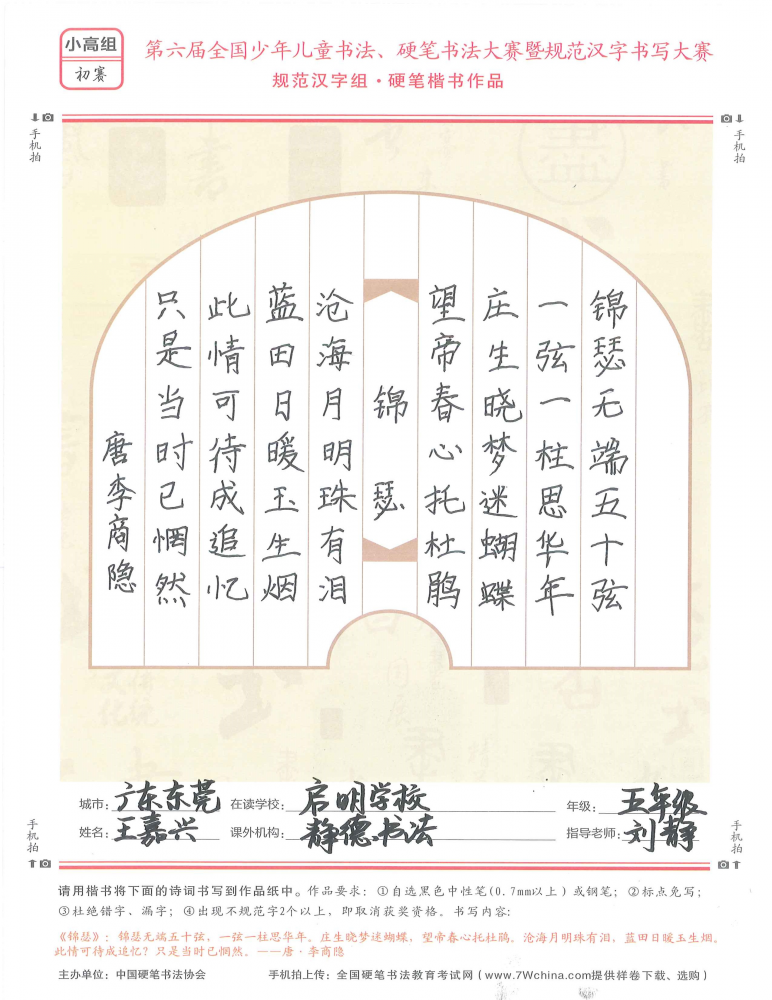 小高组
初赛
第六届全国少年儿童书法、硬笔书法大赛暨规范汉字书写大赛
规范汉字组·硬笔楷书作品
手机拍
手机拍
锦瑟无端五十弦
一弦一柱思华年
庄生晓梦迷蝴蝶
望帝春心托杜鹃
锦瑟
沧海月明珠有泪
蓝田日暖玉生烟
此情可待成追忆
只是当时已惘然
唐李商隐
城市：广东东莞 在读学校：启明学校 年级：五年级
姓名：王嘉兴 课外机构：静德书法 指导老师：刘静
手机拍
手机拍
请用楷书将下面的诗词书写到作品纸中。作品要求：①自选黑色中性笔(0.7mm以上）或钢笔；②标点免写；
③杜绝错字、漏字；④出现不规范字2个以上，即取消获奖资格。书写内容：
《锦瑟》：锦瑟无端五十弦，一弦一柱思华年。庄生晓梦迷蝴蝶，望帝春心托杜鹃。沧海月明珠有泪，蓝田日暖玉生烟。
此情可待成追忆？只是当时已惘然。——唐·李商隐
主办单位：中国硬笔书法协会 手机拍上传：全国硬笔书法教育考试网（www.7Wchina.com提供样卷下载、选购）